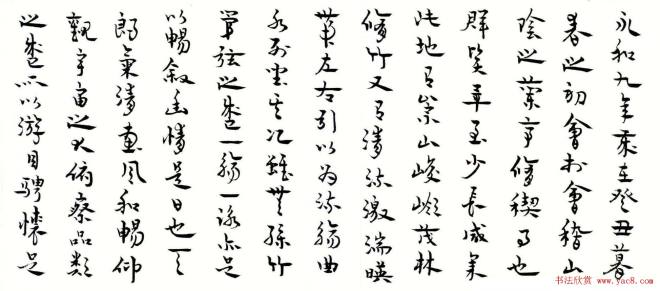 永和九年歲在癸丑暮
春之初會於會稽山
陰之蘭亭修禊事也
群賢畢至少長咸集
此地有崇山峻嶺茂林
修竹又有清流激湍暎
帶左右引以為流觴曲
水列坐其次雖無絲竹
管弦之盛一觴一詠亦足
以暢敘幽情是日也天
朗氣清惠風和暢仰
觀宇宙之大俯察品類
之盛所以游目騁懷足
书法欣赏 www.yac8.com